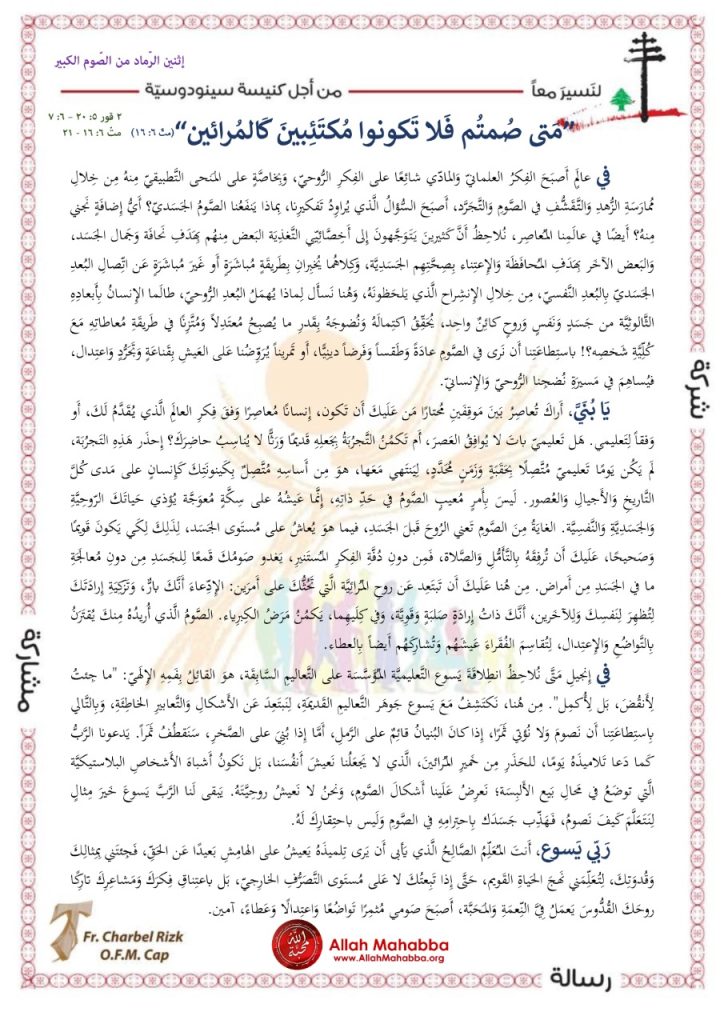 إثنين الرّماد من الصّوم الكبير
لنَسيرَ معاً
من أجل كنيسة سينودوسيّة
٢ قور ٥: ٢٠ - ٦: ٧
مت ٦: ١٦ - ٢١
”مَتى صُمتُم فَلا تَكونوا مُكتَئِبينَ كَالمُرائين“ (مت ٦: ١٦)
في عالمٍ أَصبَحَ الفِكرُ العلمانيّ وَالمادّي شائِعًا على الفِكرِ الرُّوحيّ، وَبِخاصَّةٍ على المنحى التَّطبيقيّ مِنهُ مِن خِلالِ
مُمارَسَةِ الزُّهدِ وَالتَّقَشُّفِ في الصَّومِ وَالتَّجَرُّد، أَصبَحَ السُّؤالُ الَّذي يُراوِدُ تَفكيرنا، بِماذا يَنفَعُنا الصَّومُ الجَسَديّ؟ أَيُّ إِضافَةٍ نَجني
مِنهُ؟ أيضًا في عالَمِنا المُعاصِر، نُلاحِظُ أَنَّ كَثيرينَ يَتَوَجَّهونَ إلى أَخِصَّائِيِّي التَّغذِيَة البَعض مِنهُم بِهَدَفِ نَحافَة وَجَمال الجَسَد،
وَالبَعض الآخَر بِهَدَفِ المُحافَظَة وَالإعتِناء بِصِحَّتِهِم الجَسَدِيَّة، وَكِلاهُما يُخبِرانِ بِطَريقَةٍ مُباشَرَةٍ أَو غَيرَ مُباشَرَةٍ عَن اتِّصالِ البُعدِ
الجَسَديّ بِالبُعدِ النَّفسيّ، مِن خِلالِ الإنشِراحِ الَّذي يَلحَظونَهُ، وَهُنا نَسأَل لِماذا يُهمَلُ البُعدُ الرُّوحيّ، طالَما الإنسانُ بِأَبعادِهِ
الثَّالوثِيَّة من جَسَدٍ وَنَفسٍ وَروحٍ كائِنٌ واحِد، يُحَقِّقُ اكتِمالَهُ وَنُضوجَهُ بِقَدرِ ما يُصبِحُ مُعتَدِلًا وَمُتَّزِنًا في طَريقَةِ مُعاطاتِهِ مَعَ
كُلِّيَّةِ شَخصِهِ؟! باستِطاعَتِنا أَن نَرى في الصَّومِ عادَةً وَطَقساً وَفَرضاً دينِيًّا، أَو تَمريناً يُرَوِّضُنا على العَيشِ بِقَناعَةٍ وَتَجَرُّدٍ وَاعتِدال،
فَيُساهِمَ في مَسيرَةِ نُضجِنا الرُّوحيّ وَالإنسانيّ.
يَا بُنَيَّ، أَراكَ تُعاصِرُ بَينَ مَوقِفَينِ مُحتارًا مَن عَلَيكَ أَن تَكون، إِنسانًا مُعاصِرًا وَفقَ فِكرِ العالَمِ الَّذي يُقَدَّمُ لَكَ، أَو
وَفقاً لِتَعليمي. هَل تَعليميَ باتَ لا يُوافِقُ العَصرَ، أَم تَكمُنُ التَّجرُبَةُ بِجَعلِهِ قَديمًا وَرَثًّا لا يُناسِبُ حاضِرَكَ؟ إِحذَر هَذِهِ التَّجرُبَة،
لَم يَكُن يَومًا تَعليميَ مُتَّصِلًا بِحَقبَةٍ وَزَمَنٍ مُحَدَّدٍ، لِيَنتَهي مَعَها، هوَ مِن أَساسِهِ مُتَّصِلٌ بِكَينونَتِكَ كَإِنسانٍ على مَدى كُلَّ
التَّاريخِ وَالأَجيالِ وَالعُصور. لَيسَ بِأَمرٍ مُعيبٍ الصَّومُ في حَدِّ ذاتِهِ، إِنَّما عَيشُهُ على سِكَّةٍ مُعوَجَّة يُؤذي حَياتَكَ الرّوحِيَّةِ
وَالجَسَدِيَّةِ وَالنَّفسِيَّة. الغايَةُ مِنَ الصَّومِ تَعني الرُّوحَ قَبلَ الجَسَدِ، فيما هوَ يُعاشُ على مُستَوى الجَسَد، لِذَلِكَ لِكَي يَكونَ قَويمًا
وَصَحيحًا، عَلَيكَ أَن تُرفِقَهُ بِالتَّأَمُّلِ وَالصَّلاة، فَمِن دونِ دُفَّةِ الفِكرِ المُستَنيرِ، يَغدو صَومُكَ قَمعًا لِلجَسَدِ مِن دونِ مُعالَجَةِ
ما في الجَسَدِ مِن أَمراض. مِن هُنا عَلَيكَ أَن تَبتَعِدَ عَن روحِ المُرائِيَّةِ الَّتي تَحُثُّكَ على أَمرَين: الإدِّعاءَ أَنَّكَ بارٌّ، وَتَزكِيَةِ إِرادَتَكَ
لِتُظهِرَ لِنَفسِكَ وَلِلآخَرين، أَنَّكَ ذاتُ إِرادَةٍ صَلبَةٍ وَقَوِيَّة، وَفي كِلَيهِما، يَكمُنُ مَرَضُ الكِبرِياء. الصَّومُ الَّذي أُريدُهُ مِنكَ يَقتَرِنُ
بِالتَّواضُعِ وَالإعتِدال، لِتُقاسِمَ الفُقَراءَ عَيشَهُم وَتُشارِكَهُم أَيضاً بِالعطاء.
في إِنجيلِ مَتَّى نُلاحِظُ انطِلاقَةَ يَسوعَ التَّعليمِيَّة المُؤَسَّسَة على التَّعاليمِ السَّابِقَة، هوَ القائِلُ بِفَمِهِ الإِلَهيّ: "ما جِئتُ
لِأَنقُضَ، بَل لِأُكمِل". مِن هُنا، نَكتَشِفُ مَعَ يَسوع جَوهَر التَّعاليمِ القَديمَة، لِنَبتَعِدَ عَن الأَشكالِ وَالتَّعابيرِ الخاطِئَة، وَبِالتَّالي
بِاستِطاعَتِنا أَن نَصومَ وَلا نُؤتي ثَمَرًا، إِذا كانَ البُنيانُ قائِمٌ على الرَّملِ، أَمَّا إِذا بُنِيَ على الصَّخرِ، سَنَقطُفُ ثَمَراً. يَدعونا الرَّبُّ
كَما دَعا تَلاميذَهُ يَومًا، لِلحَذَرِ مِن خَميرِ المُرائينَ، الَّذي لا يَجعَلُنا نَعيشُ أَنفُسَنا، بَل نَكونُ أَشباهَ الأَشخاصِ البلاستيكِيَّة
الَّتي توضَعُ في مَحالِ بَيعِ الأَلبِسَة؛ نَعرِضُ عَلَينا أَشكالَ الصَّوم، وَنحنُ لا نَعيشُ روحِيَّتَهُ. يَبقى لَنا الرَّبُّ يَسوعَ خَيرَ مِثالٍ
لِنَتَعَلَّمَ كَيفَ نَصومُ، فَهَذِّب جَسَدَكَ بِاحتِرامِهِ في الصَّومِ وَلَيس بِاحتِقارِكَ لَهُ.
رَبِّي يَسوع، أَنتَ المُعَلِّمُ الصَّالِحُ الَّذي يَأبى أَن يَرى تِلميذَهُ يَعيشُ على الهامِشِ بَعيدًا عَنِ الحَقّ، فَجِئتَني بِمِثالِكَ
وَقُدوَتِكَ، لِتُعَلِّمَني نَهجَ الحَياةِ القَويم، حَتَّى إِذا تَبِعتُكَ لا عَلى مُستَوى التَّصَرُّفِ الخارِجيّ، بَل باعتِناقِ فِكرَكَ وَمَشاعِرَكَ تارِكًا
روحَكَ القُدّوسَ يَعمَلُ فِيَّ النِّعمَةِ وَالمَحَبَّة، أَصبَحَ صَومي مُثمِرًا تَواضُعًا وَاعتِدالًا وَعَطاءً، آمين.
شركة
مشاركة
رسالة
Fr. Charbel Rizk
O.F.M. Cap
الله محبّة
Allah Mahabba
www.AllahMahabba.org